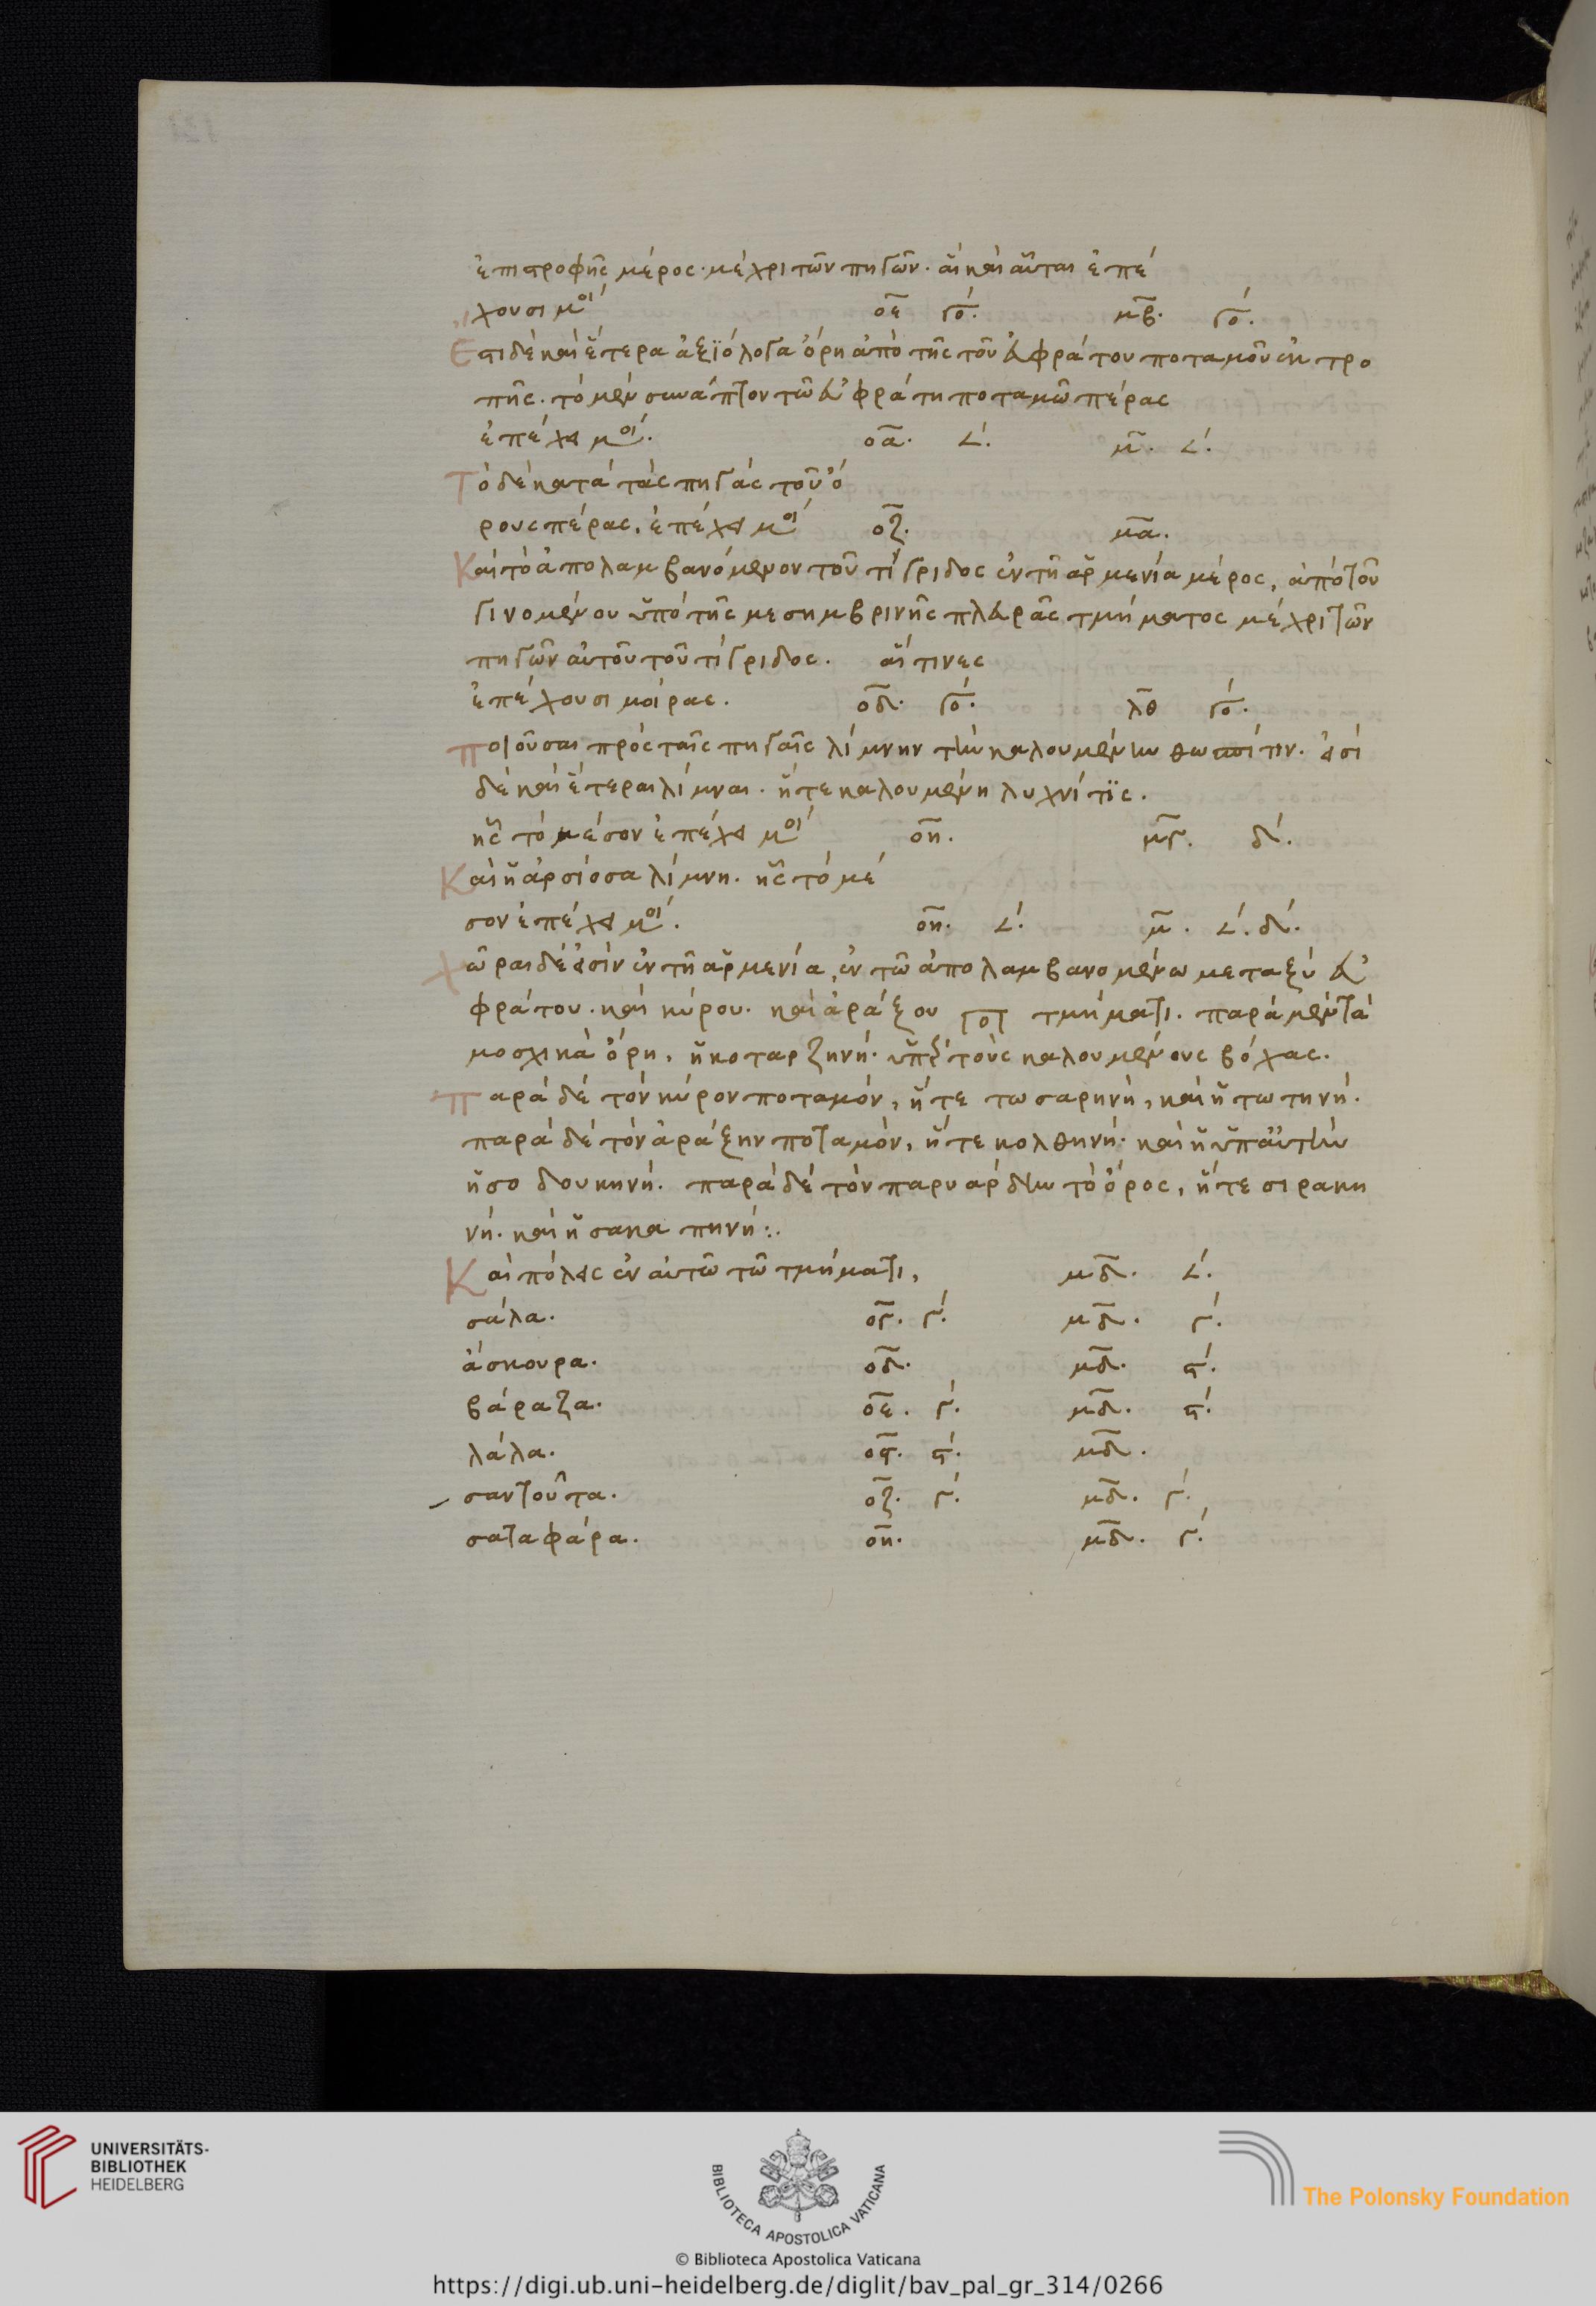 ἐπιστροφῆς μέρος· μέχρι τῶν πηγῶν· αἳ καὶ αὗται ἐπέ
χουσι μοι΄ οε γο΄. μβ. γο΄.
Ἐστι δὲ καὶ ἕτερα ἀξϊόλογα ὄρη ἀπὸ τῆς τοῦ εὐφράτου ποταμοῦ ἐκτρο
πῆς· τὸ μὲν συνάπτον τῶ εὐφράτη ποταμῶ πέρας
ἐπέχει μοι΄. οα. ∠΄. μ. ∠΄.
Τὸ δὲ κατὰ τὰς πηγὰς τοῦ ὄ
ρους πέρας, ἐπέχει μοι΄ οζ. μα.
Καὶ τὸ ἀπολαμβανόμενον τοῦ τίγριδος ἐν τῆ ἀρμενία μέρος, ἀπὸ τοῦ
γινομένου ὑπὸ τῆς μεσημβρινῆς πλευρᾶς τμήματος μέχρι τῶν
πηγῶν αὐτοῦ τοῦ τίγριδος. αἵτινες
ἐπέχουσι μοίρας. οδ. γο΄. λθ γο΄.
ποιοῦσαι πρὸς ταῖς πηγαῖς λίμνην τὴν καλουμένην θωσπίτιν. εἰσὶ
δὲ καὶ ἕτεραι λίμναι. ἥτε καλουμένη λυχνίτϊς.
ἧς τὸ μέσον ἐπέχει μοι΄ οη. μγ. δ΄.
Καὶ ἡ ἀρσίοσα λίμνη. ἧς τὸ μέ
σον ἐπέχει μοι΄. οη. ∠΄. μ. ∠΄. δ΄.
χῶραι δέ εἰσὶν ἐν τῆ ἀρμενία, ἐν τῶ ἀπολαμβανομένω μεταξὺ εὐ
φράτου. καὶ κύρου. καὶ ἀράξου τμήματι. παρὰ μὲν τὰ
μοσχικὰ ὄρη, ἡ κοταρζηνή· ὑπὲρ τοὺς καλουμένους βόχας.
παρὰ δὲ τὸν κύρον ποταμόν, ἥτε τωσαρηνὴ, καὶ ἡ τωτηνή.
παρὰ δὲ τὸν ἀράξην ποταμὸν, ἥτε κολθηνή· καὶ ἡ ὑπ᾽ αὐτὴν
ἡ σοδουκηνή. παρὰ δὲ τὸν παρυάρδην τὸ ὄρος, ἥτε σιρακη
νή. καὶ ἡ σακαπηνή:.
Καὶ πόλεις ἐν αὐτῶ τῶ τμήματι, μδ. ∠΄.
σάλα. ογ. γ΄. μδ. γ΄.
ἄσκουρα. οδ. μδ. ϛ΄.
βάραζα. οε. γ΄. μδ. ϛ΄.
λάλα. οϛ. ϛ΄. μδ.
σαντοῦτα. οζ. γ΄. μδ. γ΄.
σαταφάρα. οη. μδ. γ΄.
UNIVERSITÄTS-
BIBLIOTHEK
HEIDELBERG
BIBLIOTECA APOSTOLICA VATICANA
The Polonsky Foundation
© Biblioteca Apostolica Vaticana
https://digi.ub.uni-heidelberg.de/diglit/bav_pal_gr_314/0266